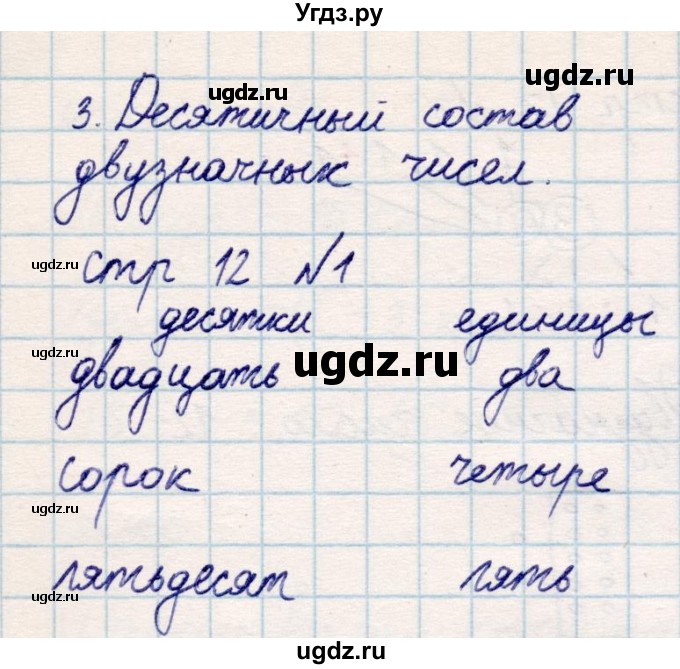 Угдз.ру
ugdz.ru ugdz.ru
3. Десятичный состав
двузначных чисел.
ugdz.ru стр 12 №1
десятки единицы
ugdz.ru двадцать ugdz.ru два
сорок четыре
ugdz.ru
пятьдесят пять
ugdz.ru ugdz.ru
ugdz.ru